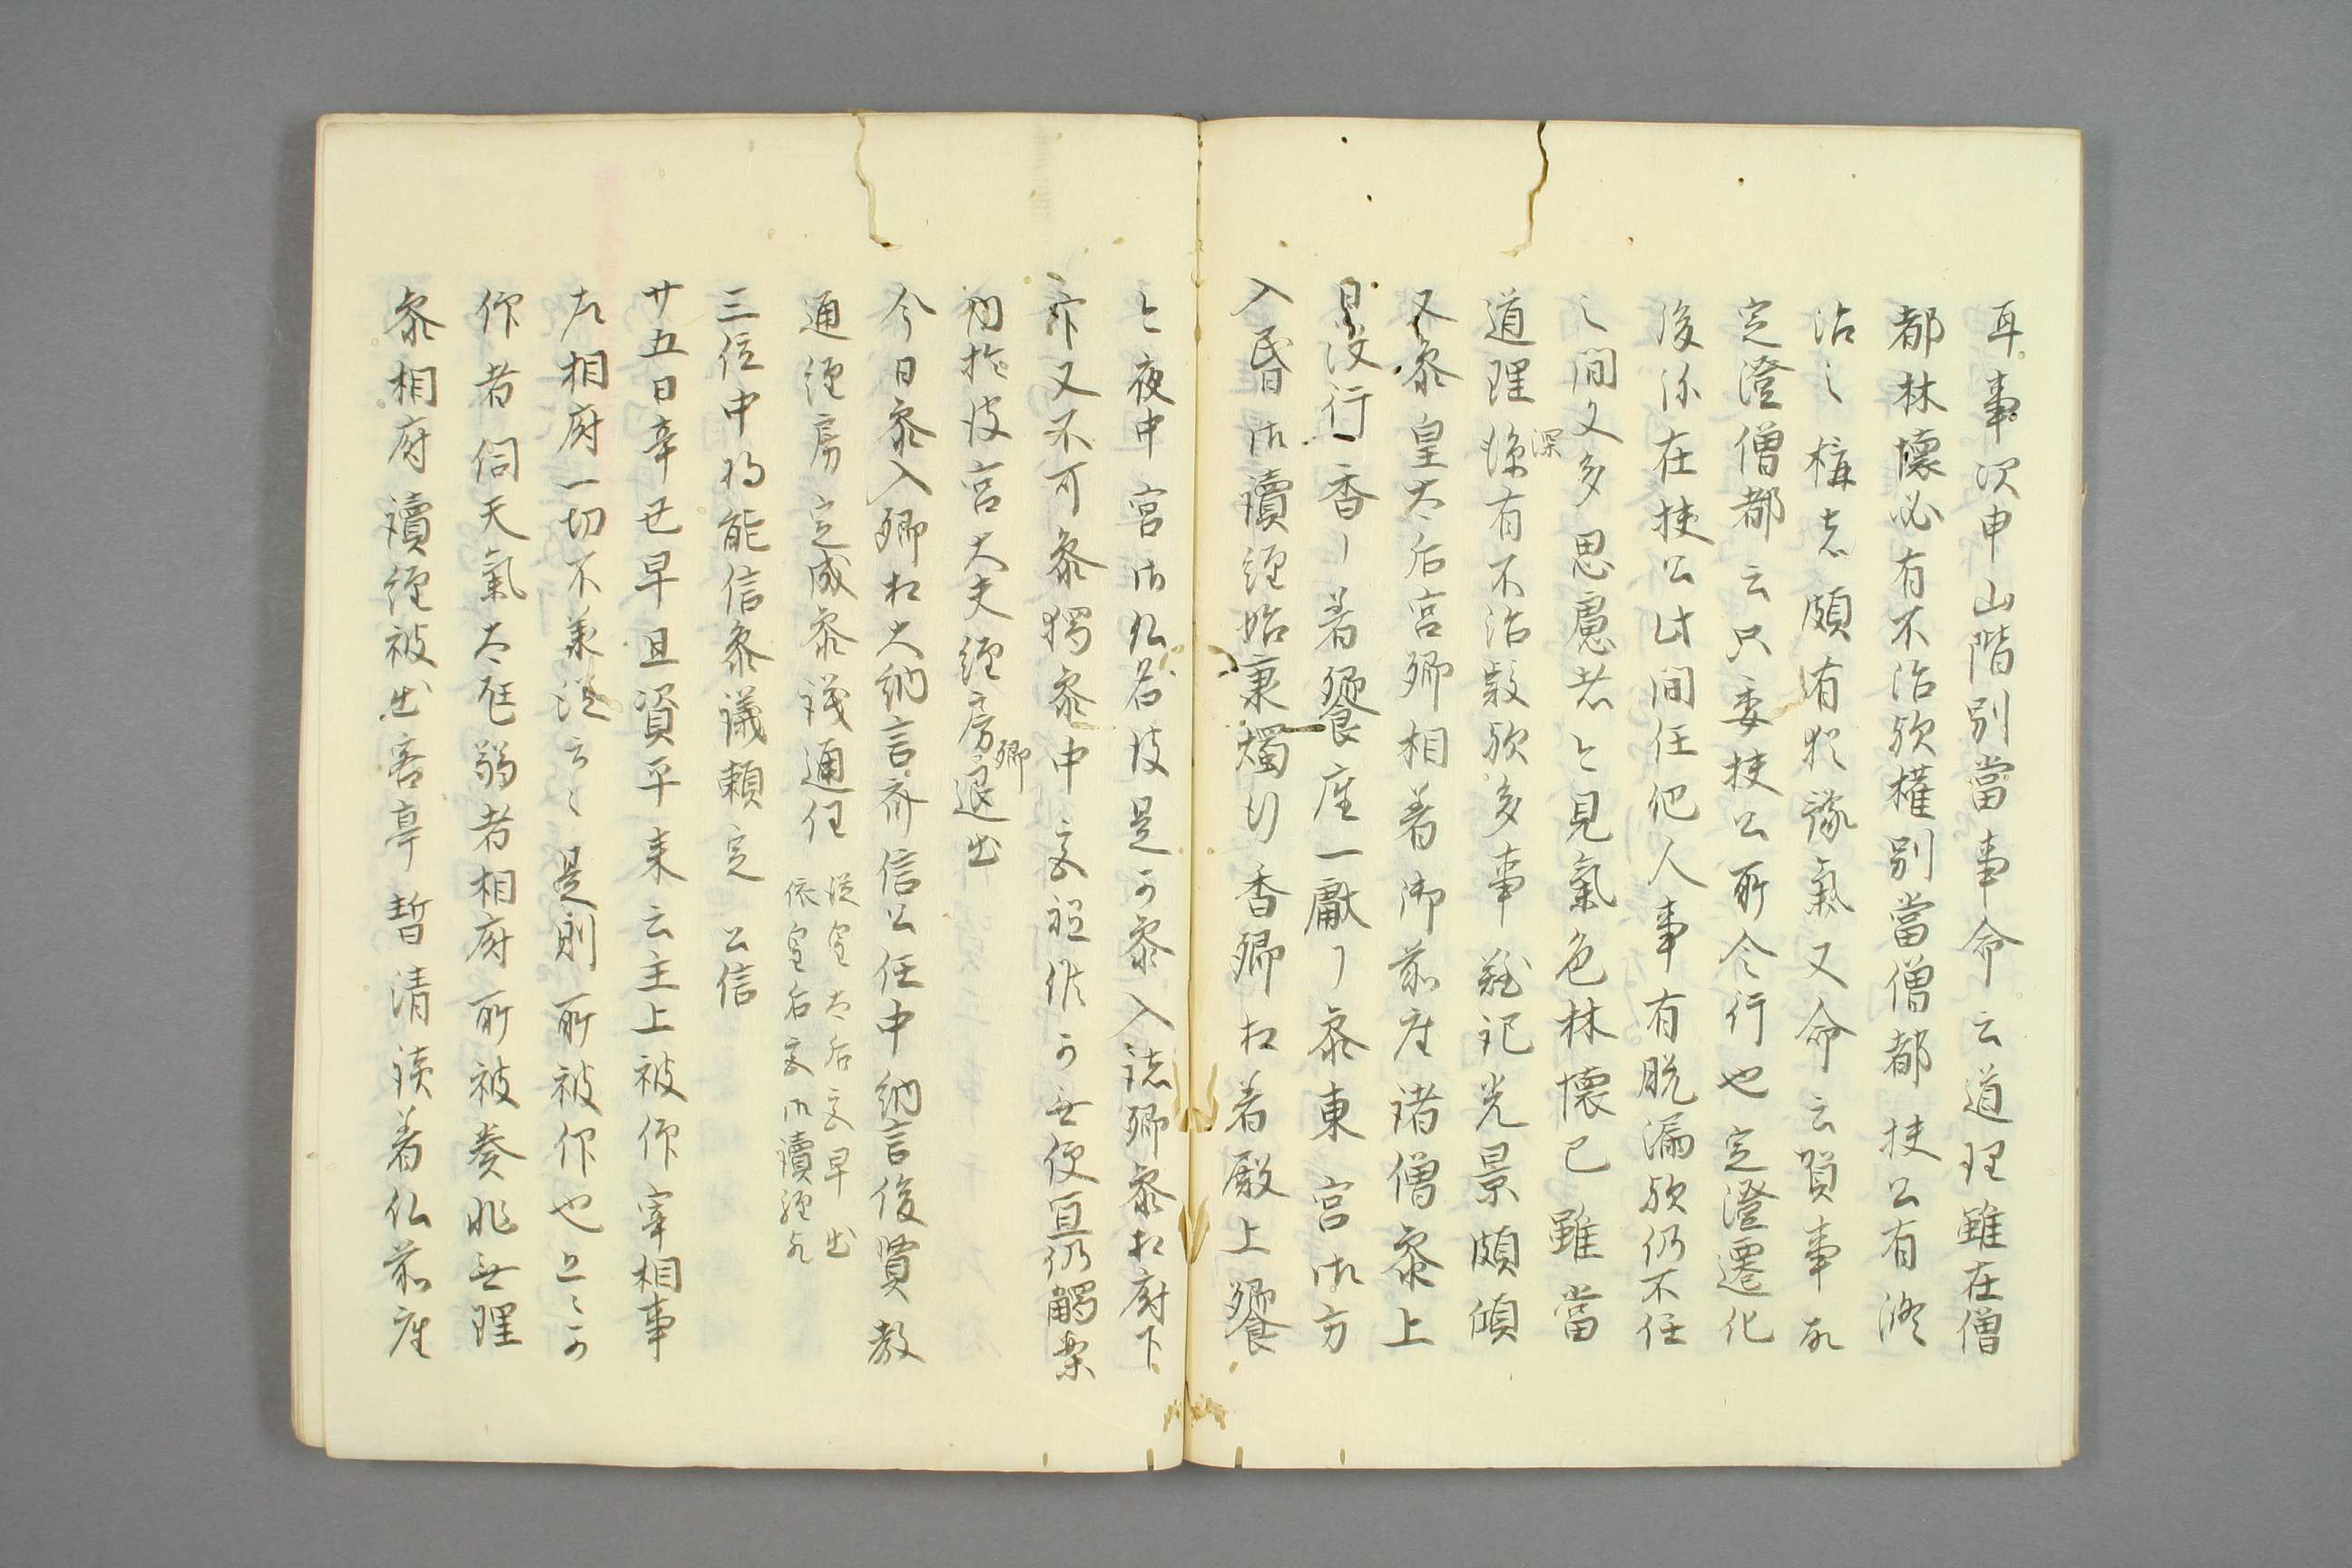 耳事次申山階別當事命云道理雖在僧
都林懐必有不治欤權別當僧都扶公有涯
沾之構者頗有猶豫氣又命云賀事了
定澄僧都云只委扶公所令行也定澄遷化
後弥在扶公此間任他人事有脱漏欤仍不任
之間又多思慮者今見氣色林懐已雖當
道理深有不治歎欤多事難記光景頗傾
又参皇太后宮卿相着御前座諸僧参上
日没行香了着饗座一獻了参東宮御方
入昏御讀經始秉燭行香卿相着殿上饗
今夜中宮御仏名彼是可参入諸卿参相府下
部又不可参獨参中宮祖候可無便宜仍觸案
内於彼宮大夫經房卿退出
今日参入卿相大納言斉信公任中納言俊賢教
通經房定成参議通任 從皇太后宮早出
依皇后宮御讀經了
三位中将能信参議頼定 公信
廿五日辛丑早旦資平来云主上被仰宰相事
左相府一切不兼從云々是則所被仰也云々可
仰者伺天氣太尫弱者相府所被奏非無理
参相府讀經被出客亭暫清談着仏前座